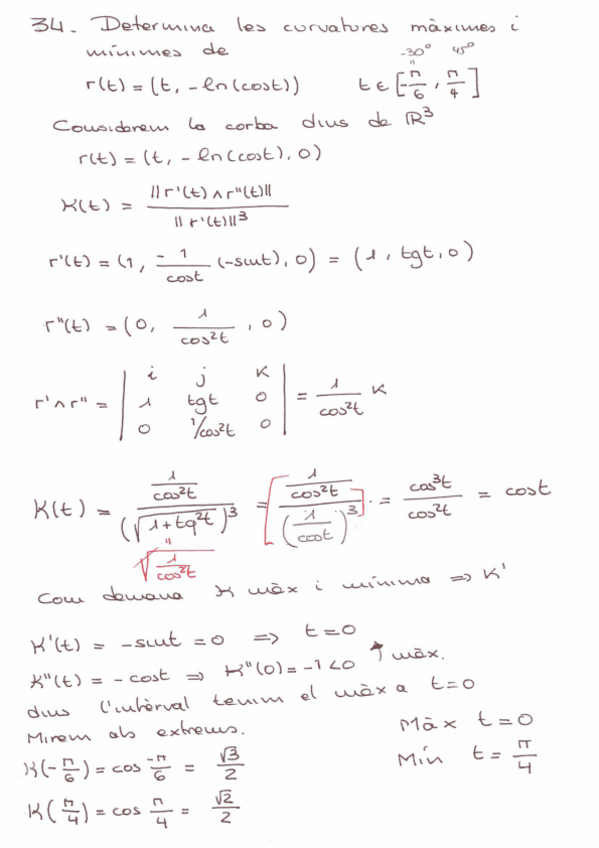 34. Determina les curvatures màximes i
mínimes de
-30° 45°
r(t) = (t, -ln(cost)) t ∈ [-π/6, π/4]
Considerem la corba dius de ℝ³
r(t) = (t, -ln(cost), 0)
K(t) = ||r'(t) ∧ r''(t)|| / ||r'(t)||³
r'(t) = (1, -1/cost (-sint), 0) = (1, tgt, 0)
r''(t) = (0, 1/cos²t, 0)
i j K
r' ∧ r'' = | 1 tgt 0 | = 1/cos²t K
0 1/cos²t 0
K(t) = (1/cos²t) / (√(1+tg²t))³ = [(1/cos²t) / (1/cost)³] · = cos³t/cos²t = cost
" √(1/cos²t)
Com demana K màx i mínima ⇒ K'
K'(t) = -sint = 0 ⇒ t=0
K''(t) = -cost ⇒ K''(0) = -1 < 0 ↑ màx.
dius l'intèrval tenim el màx a t=0
Mirem als extrems.
K(-π/6) = cos -π/6 = √3/2
K(π/4) = cos π/4 = √2/2
Màx t=0
Mín t= π/4